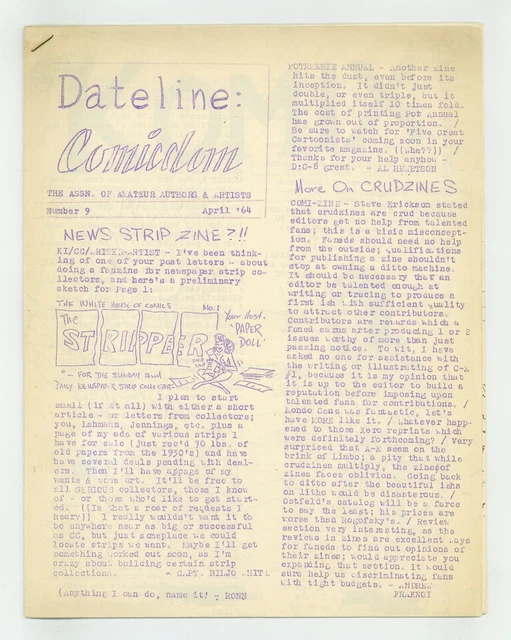 Dateline:
Comicdom
THE ASSN. OF AMATEUR AUTHORS & ARTISTS
Number 9 April '64
NEWS STRIP ZINE?!!
I've been think-
ing of one of your past letters - about
doing a fanzine for newspaper strip co-
llectors, and here's a preliminary
sketch for Page 1:
THE WHITE House OF COMICS No. 1
The STRIPPER
Your Host,
'PAPER
DOLL'
"- FOR THE SUNDAY AND
DAILY NEWSPAPER STRIP COLLECTOR
I plan to start
small (if at all) with either a short
article - or letters from collectors;
you, Lahmann, Jennings, etc. plus a
page of my ads of various strips I
have for sale (just rec'd 70 lbs. of
old papers from the 1930's) and have
have several deals pending with deal-
ers. Then I'll have appage of my
wants & some art. It'll be free to
all SERIOUS collectors, those I know
of - or them who'd like to get start-
ed. ((Is that a roar of requests I
hear?)) I really wouldn't want it to
be anywhere near as big or successful
as CC, but just someplace we could
locate strips we want. Maybe I'll get
something worked out soon, as I'm
crazy about building certain strip
collections. - CAPT. BILJO WHITE
(Anything I can do, name it! - RONN
POTRZEBIE ANNUAL - Another zine
hits the dust, even before its
inception. It didn't just
double, or even triple, but it
multiplied itself 10 times fold.
The cost of printing Pot Annual
has grown out of proportion. /
Be sure to watch for 'Five Great
Cartoonists' coming soon in your
favorite magazine. ((What??)) /
Thanks for your help anyhow -
D:C-8 great. -
More On CRUDZINES
COMI-ZINE - Steve Erickson stated
that crudzines are crud because
editors get no help from talented
fans; this is a basic misconcept-
ion. Faneds should need no help
from the outside; qualifications
for publishing a zine shouldn't
stop at owning a ditto machine.
It should be necessary that an
editor be talented enough at
writing or tracing to produce a
first ish with sufficient quality
to attract other contributors.
Contributors are rewards which a
faned earns after producing 1 or 2
issues worthy of more than just
passing notice. To wit, I have
asked no one for assistance with
the writing or illustrating of C-Z
#1, because it is my opinion that
it is up to the editor to build a
reputation before imposing upon
talented fans for contributions. /
Mondo Cane was fantastic, let's
have MORE like it. / Whatever happ-
ened to those Xero reprints which
were definitely forthcoming? / Very
surprised that A-E seem on the
brink of limbo; a pity that while
crudzines multiply, the zinesof
zines faces oblivion. Going back
to ditto after the beautiful ishs
on litho would be disasterous. /
Ostfeld's catalog will be a farce
to say the least; his prices are
worse than Rogofsky's. / Review
section very interesting, as the
reviews in zines are excellent ways
for faneds to find out opinions of
their zines; would appreciate you
expanding that section. It would
sure help us discriminating fans
with tight budgets. - ANDREW
FRAKNOI